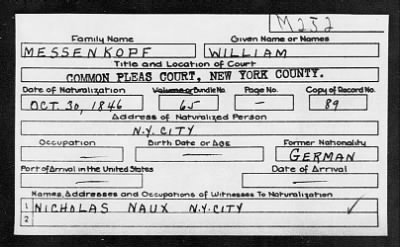 M252
Family Name Given Name or Names
MESSENKOPF WILLIAM
Title and Location of Court
COMMON PLEAS COURT, NEW YORK COUNTY.
Date of Naturalization Volume or Bundle No. Page No. Copy of Record No.
OCT. 30, 1846 65 — 89
Address of Naturalized Person
N.Y. CITY
Occupation Birth Date or Age Former Nationality
— — GERMAN
Port of Arrival in the United States Date of Arrival
— —
Names, Addresses and Occupations of Witnesses To Naturalization
1 NICHOLAS NAUX N.Y. CITY ✓
2